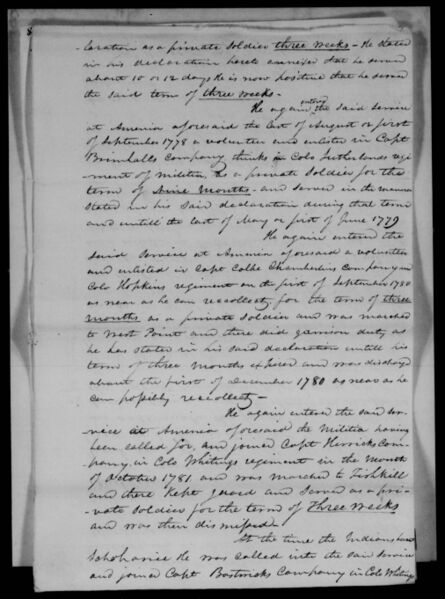 laration as a private Soldier three weeks - He stated
in his declaration hereto annexed that he served
about 10 or 12 days He is now positive that he served
the said term of three weeks -
He again entered the said service
at Amenia aforesaid the last of August or first
of September 1778 a volunteer and enlisted in Capt
Brimhalls Company thinks in Colo Sutherlands regi
ment of militia, as a private Soldier for the
term of Nine Months - and served in the manner
stated in his said declaration during that term
and untill the last of May or first of June 1779
He again entered the
said service at Amenia aforesaid a volunteer
and enlisted in Capt Chamberlins Company in
Colo Hopkins regiment on the first of September 1780
as near as he can recollect, for the term of three
months as a private Soldier and was marched
to West Point and there did garrison duty as
he has stated in his said declaration untill his
term of three months expired and was discharged
about the first of December 1780 as near as he
can possibly recollect -
He again entered the said ser-
vice at Amenia aforesaid the Militia having
been called for, and joined Capt Herricks Com-
pany, in Colo Whitings regiment in the month
of October 1781 and was marched to Fishkill
and there Kept guard and served as a pri-
vate Soldier for the term of Three weeks
and was then dismissed -
At the time the Indians
Schoharie He was called into the said service
and joined Capt Bostwicks Company in Colo Whiting